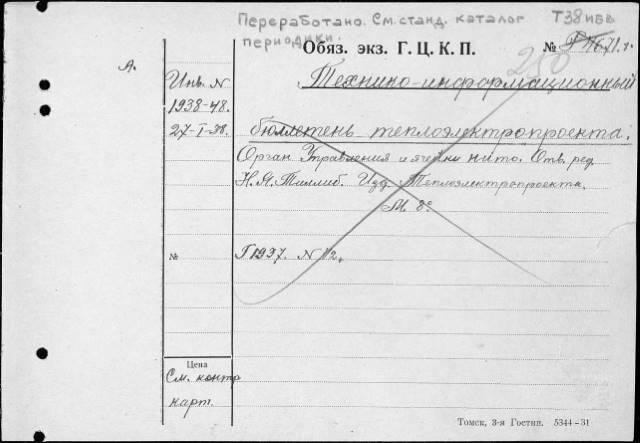 Переработано. См. станд. каталог
периодики.
Обяз. экз. Г. Ц. К. П.
№
250
А.
Инв. N
1938-48.
27-I-38.
Технико-информационный
бюллетень теплоэлектропроекта.
Орган Управления и ячейки нито. Отв. ред.
Изд. Теплоэлектропроекта.
М. 8º
№
Г 1937. N 12.
Цена
См. контр
карт.
Томск, 3-я Гостип. 5344—31